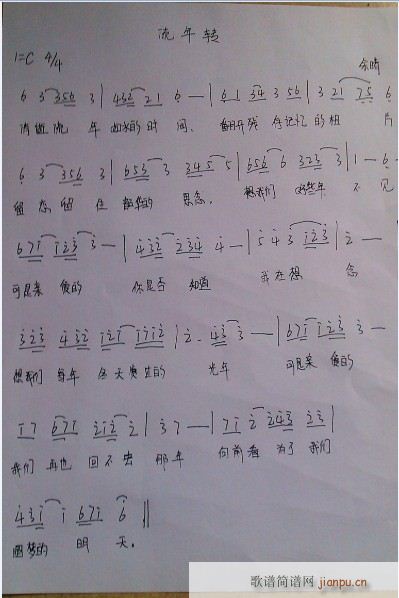 流年转
1=C 4/4
余晴
6 3 356 3 | 432 21 6 — | 6 1 34 3 56 | 3 21 75 6
流年 的时间 翻开残存记忆的相片
6 3 356 3 | 653 3 345 5 | 656 6 323 3 | 1 — 6
留恋 留住 思念。 想我们 那些年 不见
671 123 3 — | 432 234 4 — | 5 4 3 123 | 2 —
可是亲爱的 你是否知道 我在想念
323 432 121 1712 | 2 - 43 3 — | 671 123 3 —
想我们 每年冬天 光年 可是亲爱的
17 671 212 2 | 3 7 — | 71 2 243 23 |
我们再也回不去那年 向前看为了我们
431 1 671 6 ||
圆梦的明天。
歌谱简谱网
jianpu.cn